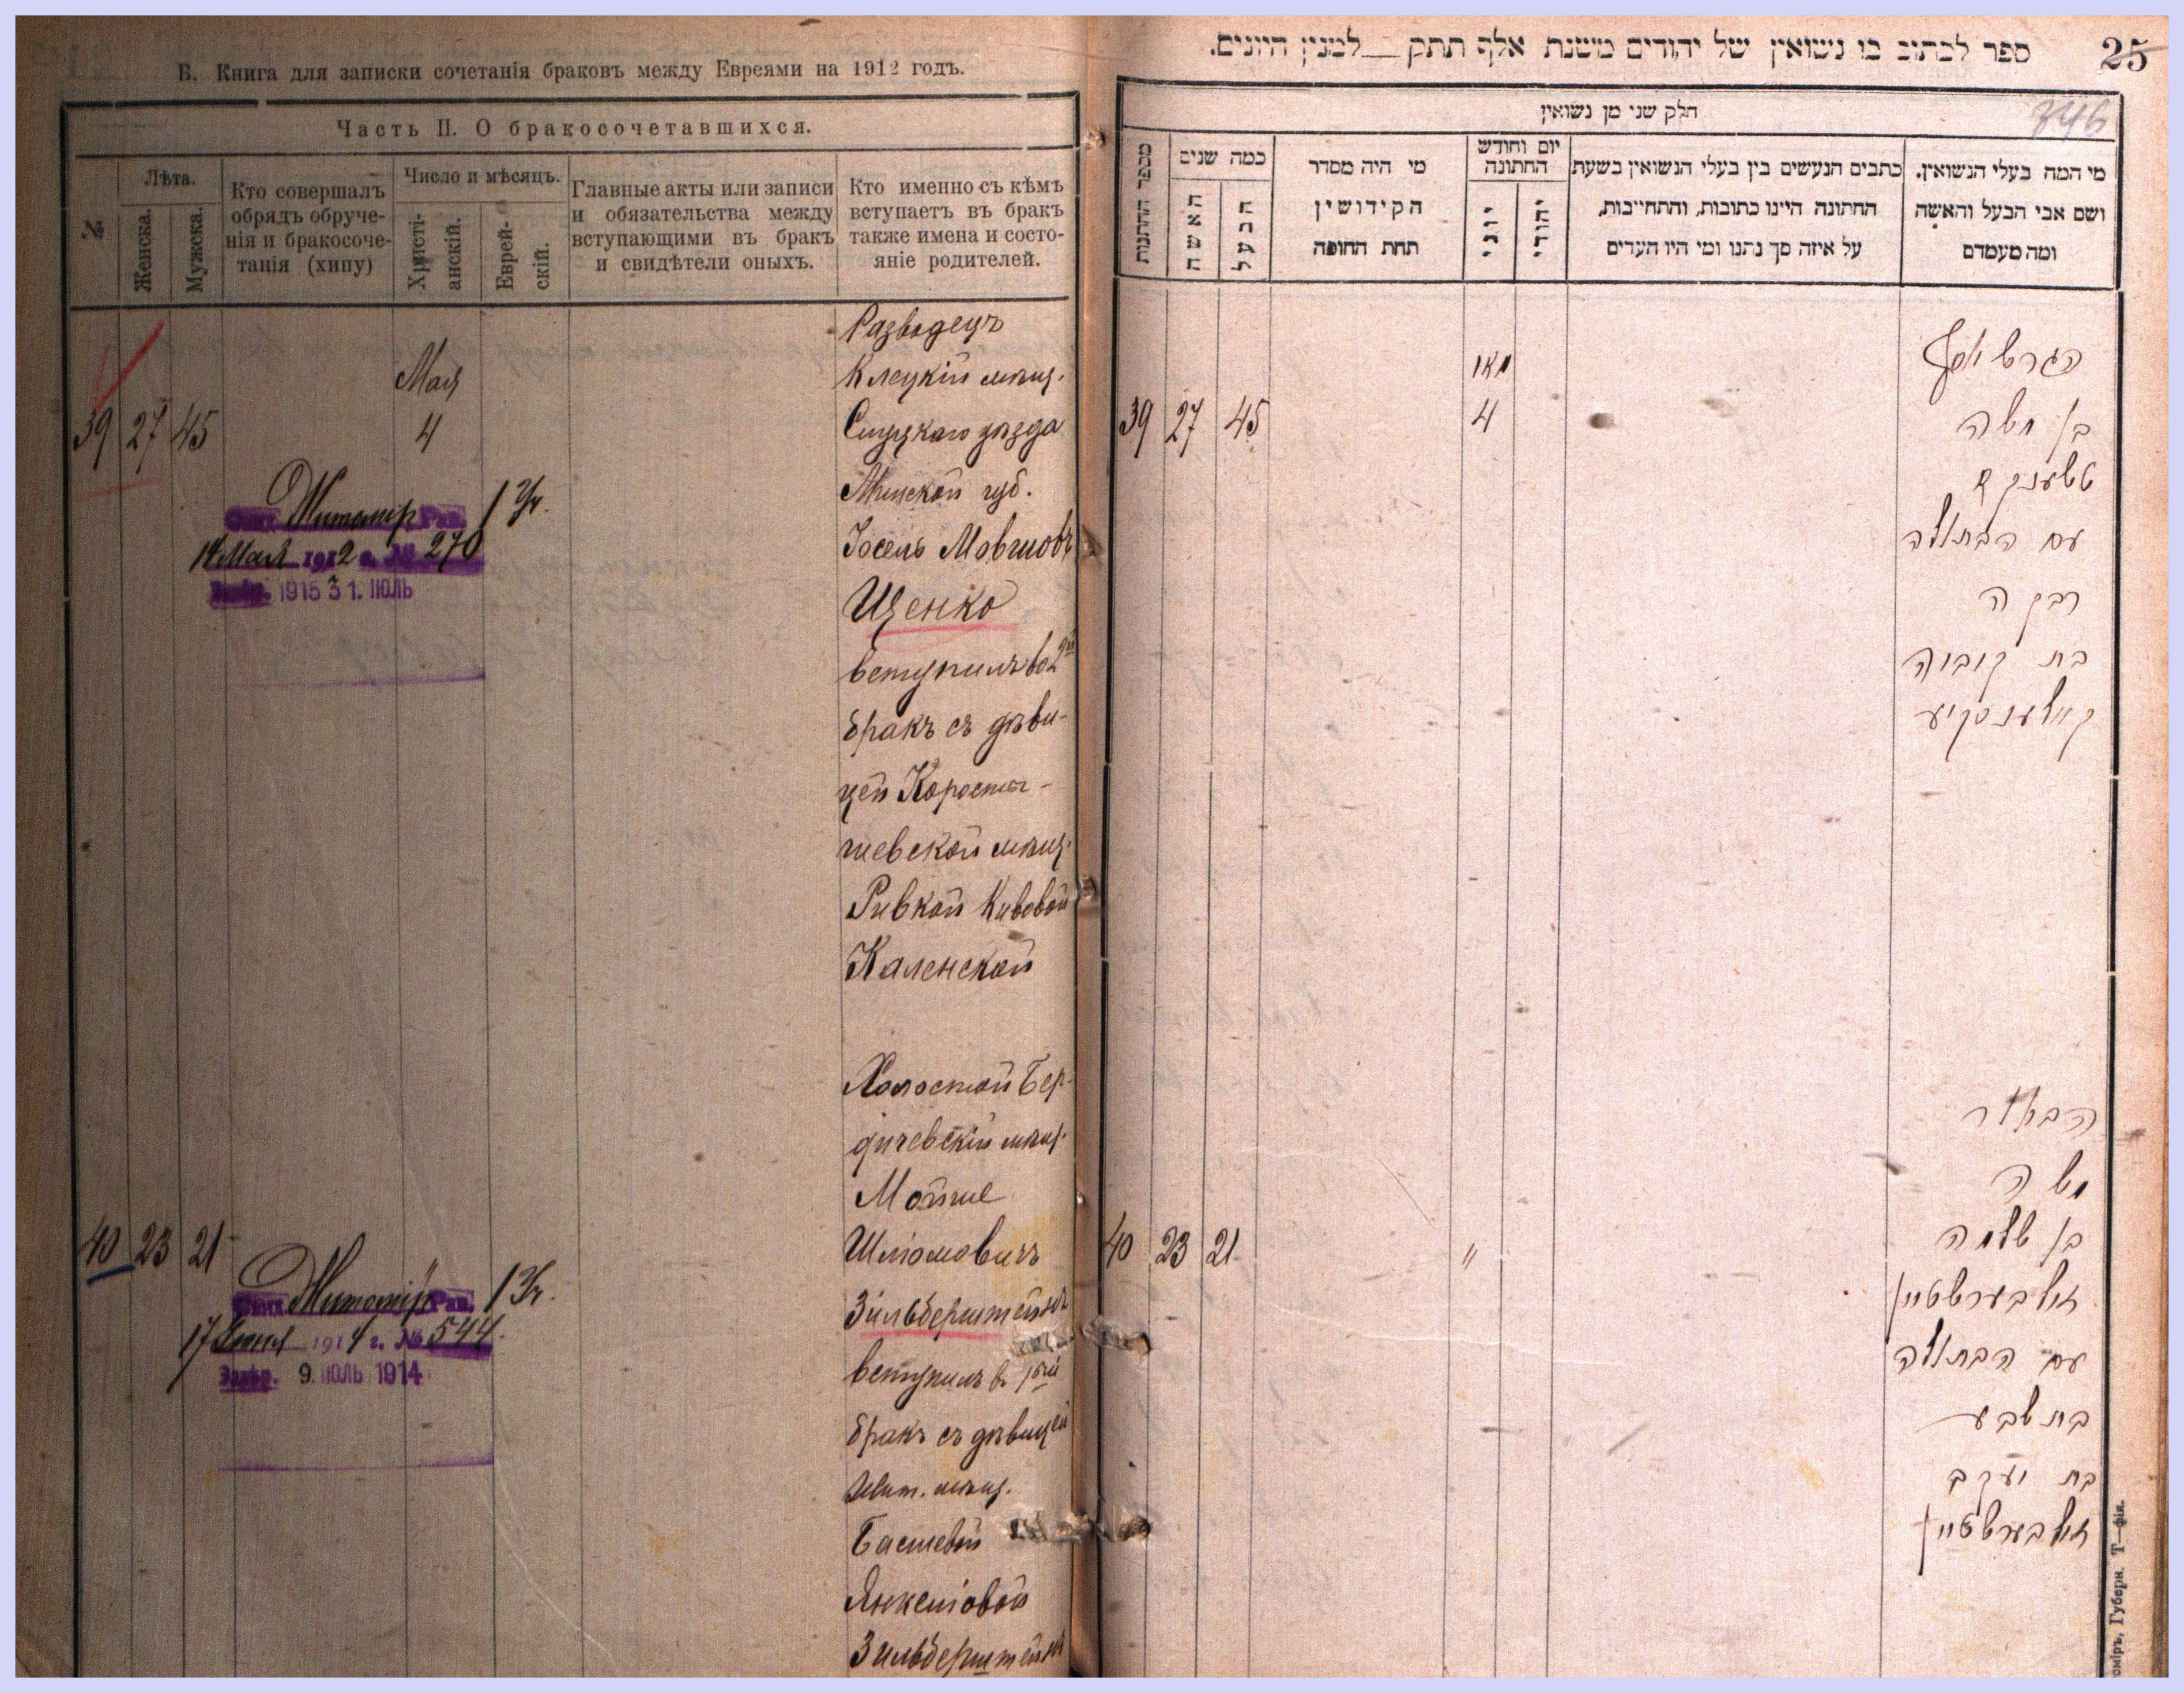 В. Книга для записки сочетанія браковъ между Евреями на 1912 годъ.
Часть II. О бракосочетавшихся.
№
Лѣта.
Женска.
Мужска.
Кто совершалъ
обрядъ обруче-
нія и бракосоче-
танія (хипу)
Число и мѣсяцъ.
Христі-
анскій.
Еврей-
скій.
Главные акты или записи
и обязательства между
вступающими въ бракъ
и свидѣтели оныхъ.
Кто именно съ кѣмъ
вступаетъ въ бракъ
также имена и состо-
яніе родителей.
39 27 45
Мая
4
Житомір Рав. 1 Уч.
14 Мая 1912 г. № 270
1915 31. ІЮЛЬ
Разводецъ
Клецкій мѣщ.
Слуцкаго уѣзда
Минской губ.
Іосель Мовшовъ
Щенко
вступилъ во 2й
бракъ съ дѣви-
цей Коросты-
шевской мѣщ.
Ривкой Кивовой
Каленской
40 23 21
Житомір Рав. 1 Уч.
17 1914 г. № 544.
9. ІЮЛЬ 1914
Холостой Бер-
дичевскій мѣщ.
Мойше
Шліомовичъ
Зильберштейнъ
вступилъ в 1ый
бракъ съ дѣвицей
Жит. мѣщ.
Басшевой
Янкеліовой
Зильберштейнъ
25
ספר לכתוב בו נשואין של יהודים משנת אלף תתק — למנין היונים.
346
חלק שני מן נשואין
מספר החתנות
כמה שנים
האשה
הבעל
מי היה מסדר
הקידושין
תחת החופה
יום וחודש
החתונה
יוני
יהודי
כתבים הנעשים בין בעלי הנשואין בשעת
החתונה היינו כתובות, והתחייבות,
על איזה סך נתנו ומי היו העדים
מי המה בעלי הנשואין.
ושם אבי הבעל והאשה
ומה מעמדם
39 27 45
מאי
4
הגרש יוסף
בן משה
עם הבתולה
רבקה
בת קובוה
קאלענסקיע
40 23 21
"
הבחור
משה
בן שלמה
זילבערשטיין
עם הבתולה
בת שבע
בת יעקב
זילבערשטיין
оміръ, Губерн. Т—фія.